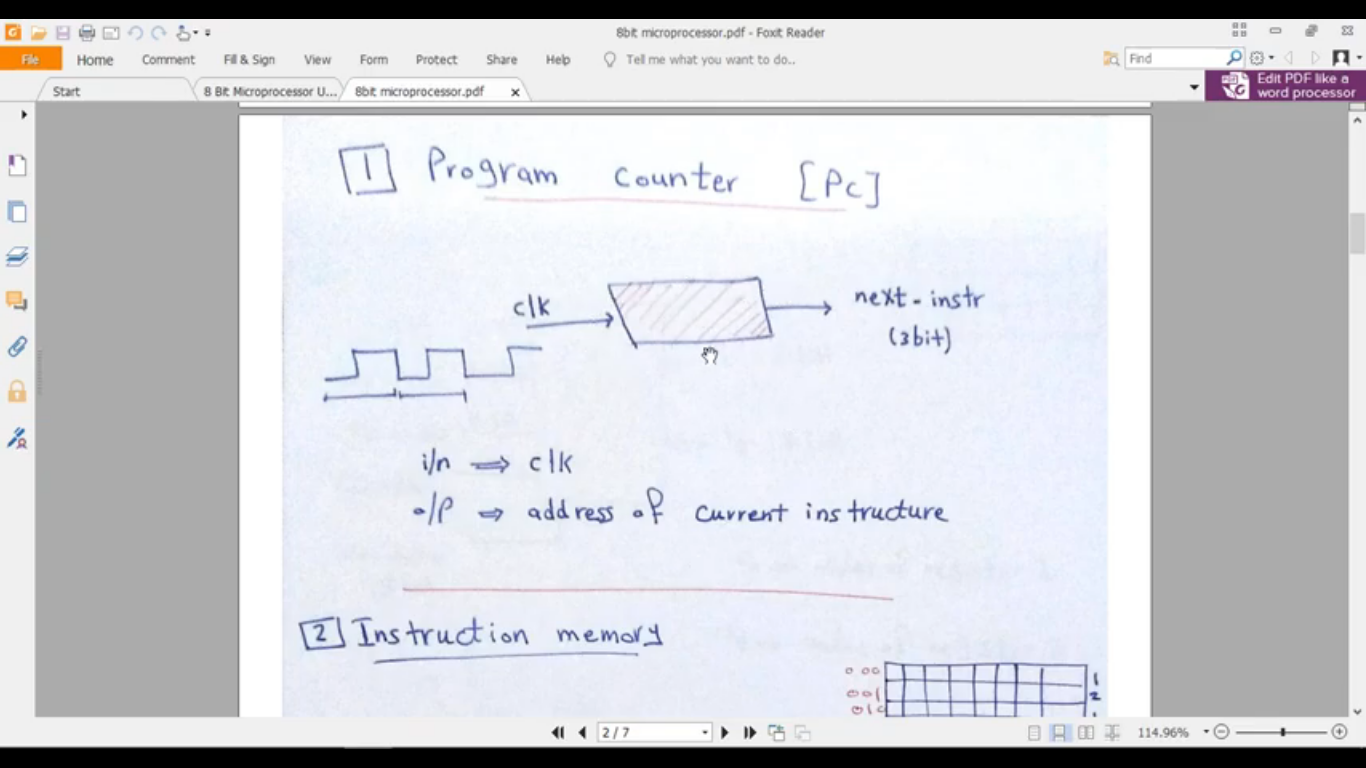 8bit microprocessor.pdf - Foxit Reader
File Home Comment Fill & Sign View Form Protect Share Help Tell me what you want to do.. Find
Start 8 Bit Microprocessor U... 8bit microprocessor.pdf
Edit PDF like a
word processor
1 Program counter [Pc]
clk
next-instr
(3bit)
i/n ⇒ clk
o/P ⇒ address of current instructure
2 Instruction memory
000 1
001 2
010
2 / 7 114.96%